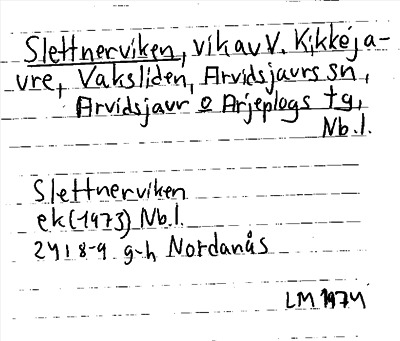 Slettnerviken, vik av V. Kikkeja-
vre, Vaksliden, Arvidsjaurs sn,
Arvidsjaur o Arjeplogs tg,
Nb.l.
Slettnerviken
ek (1973) Nb.l.
24 I 8-9 g-h Nordanås
LM 1974